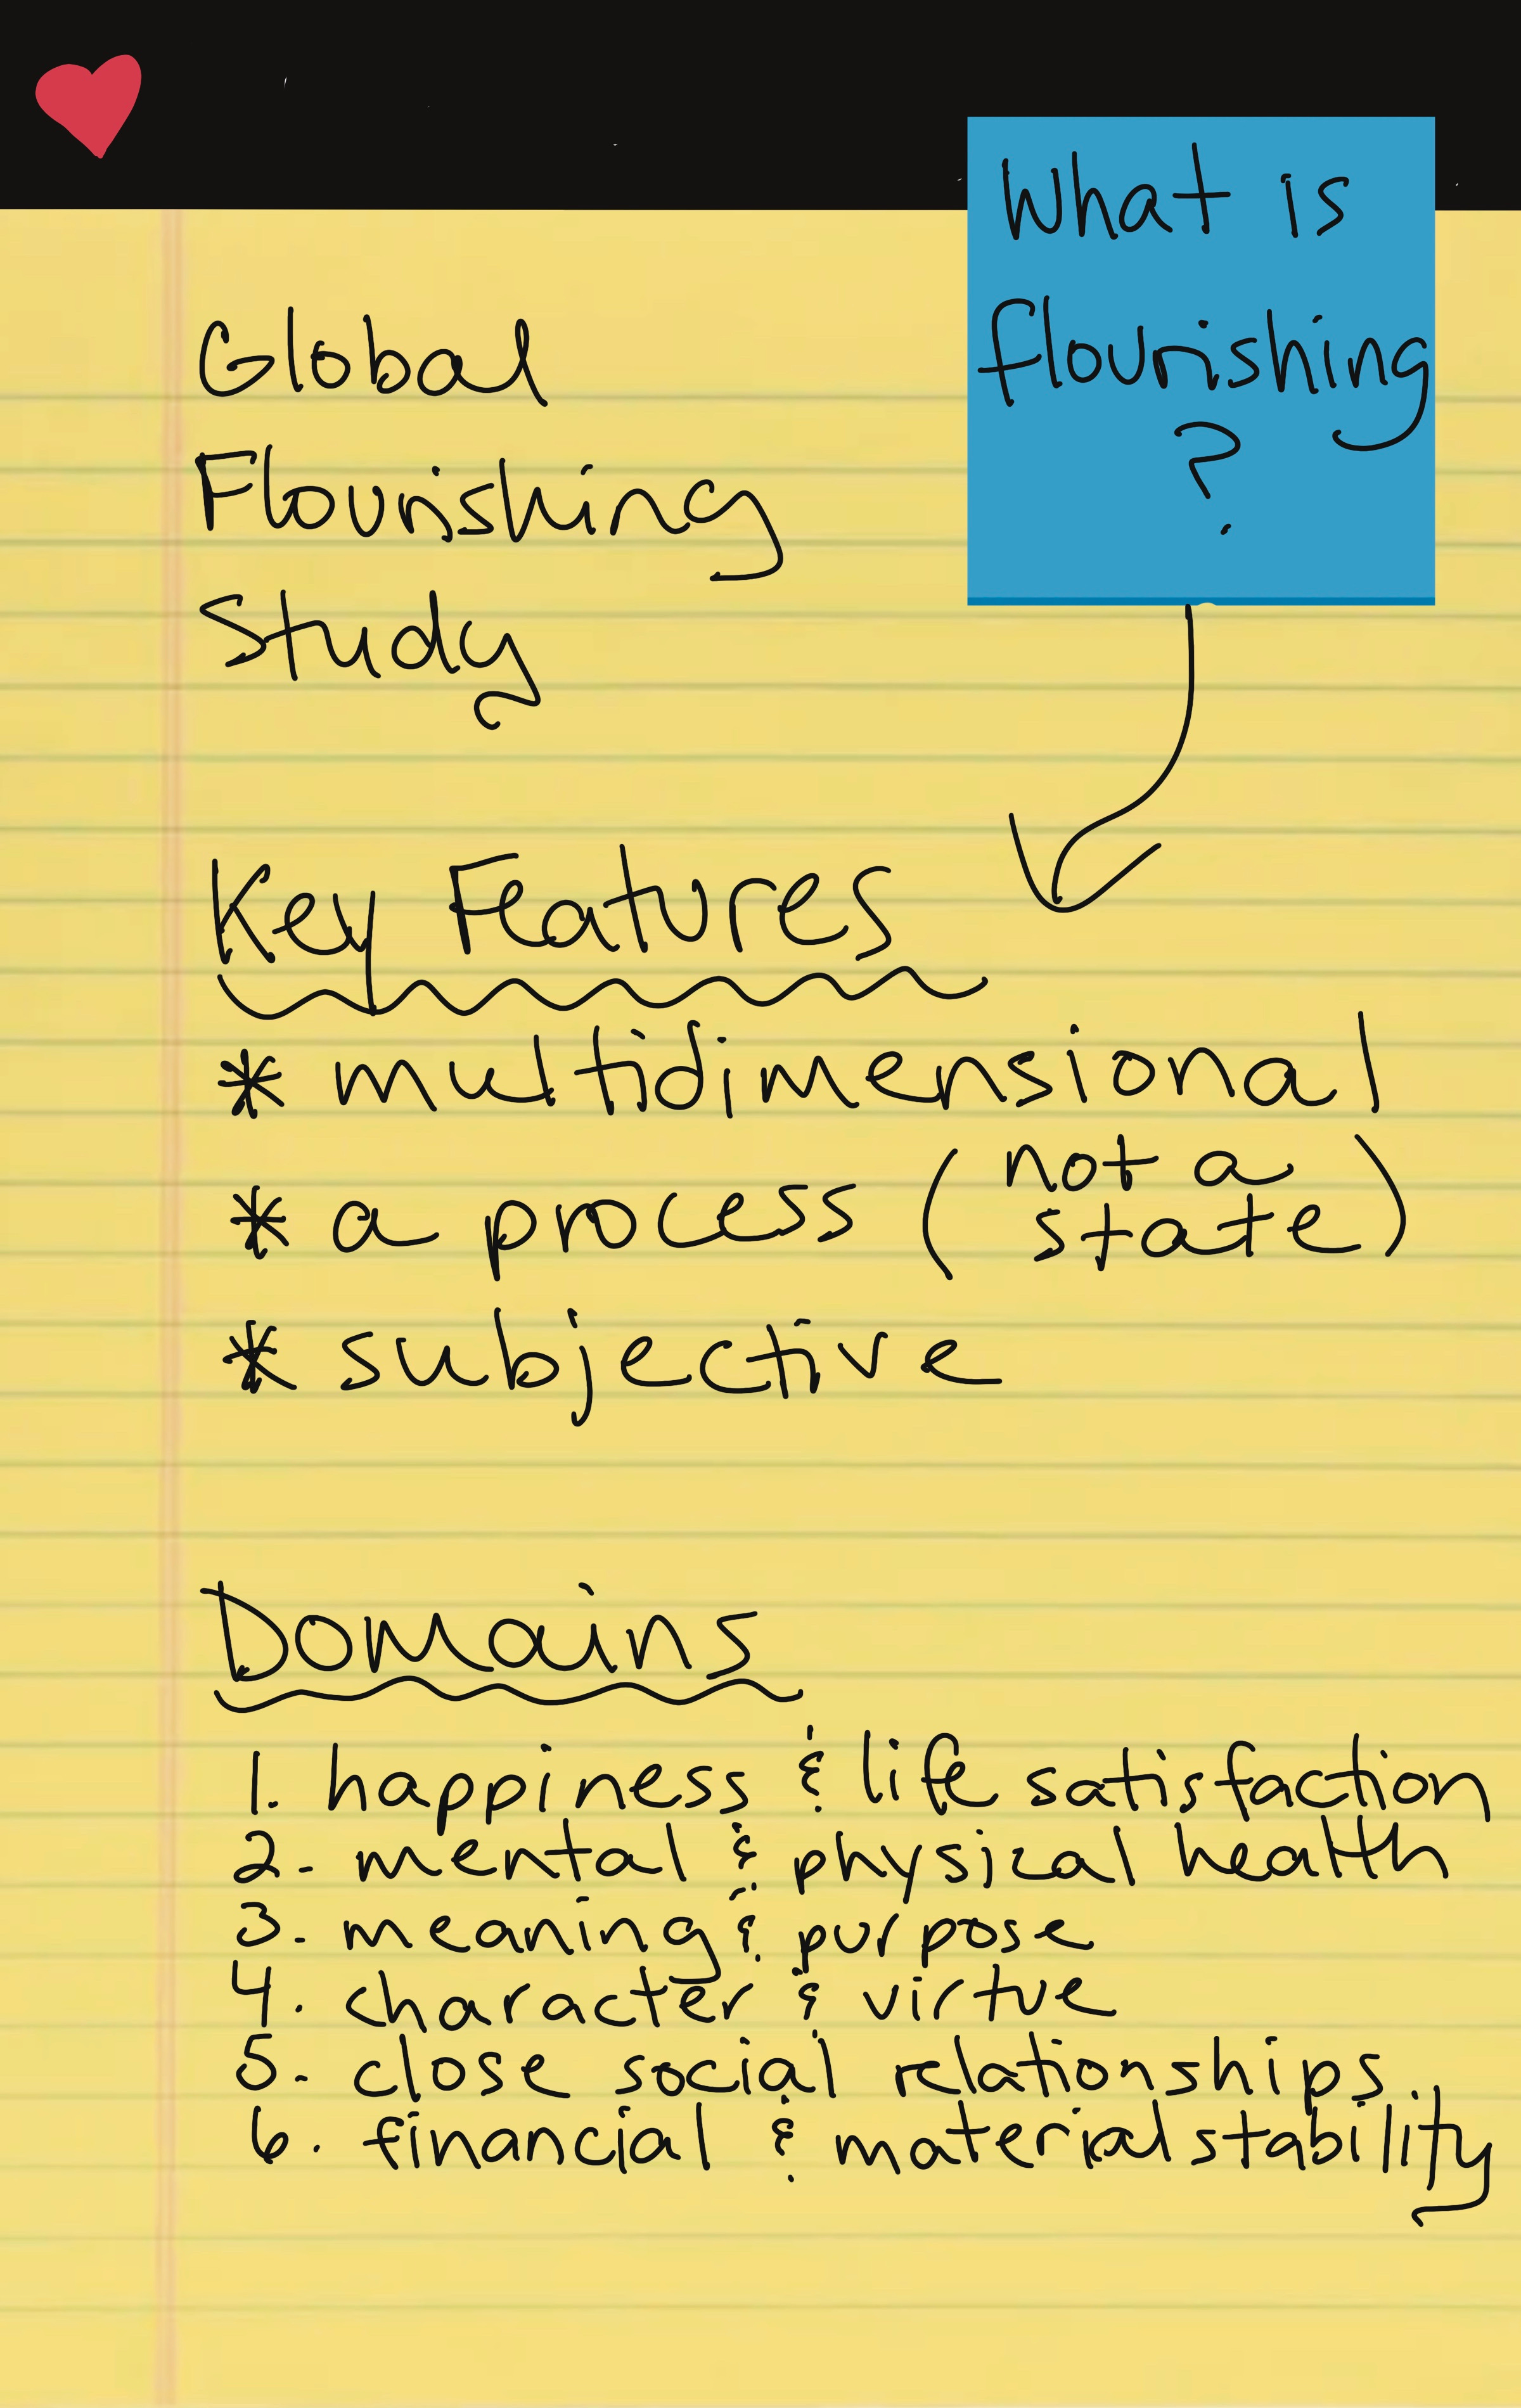 What is
flourishing
?
Global
Flourishing
Study
Key Features
* multidimensional
* a process (not a
state)
* subjective
Domains
1. happiness & life satisfaction
2. mental & physical health
3. meaning & purpose
4. character & virtue
5. close social relationships
6. financial & material stability